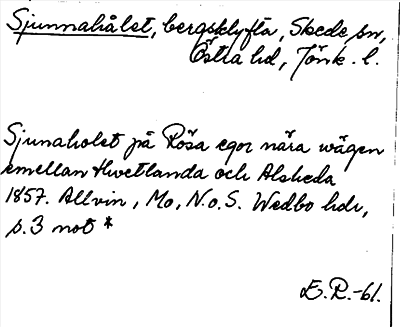 Sjunnahålet, bergsklyfta, Skede sn,
Östra hd, Jönk. l.
Sjunaholet på Rösa egor nära wägen
emellan Hwetlanda och Alsheda
1857. Allvin, Mo, N.o.S. Wedbo hdr,
s.3 not *
E.R.-61.